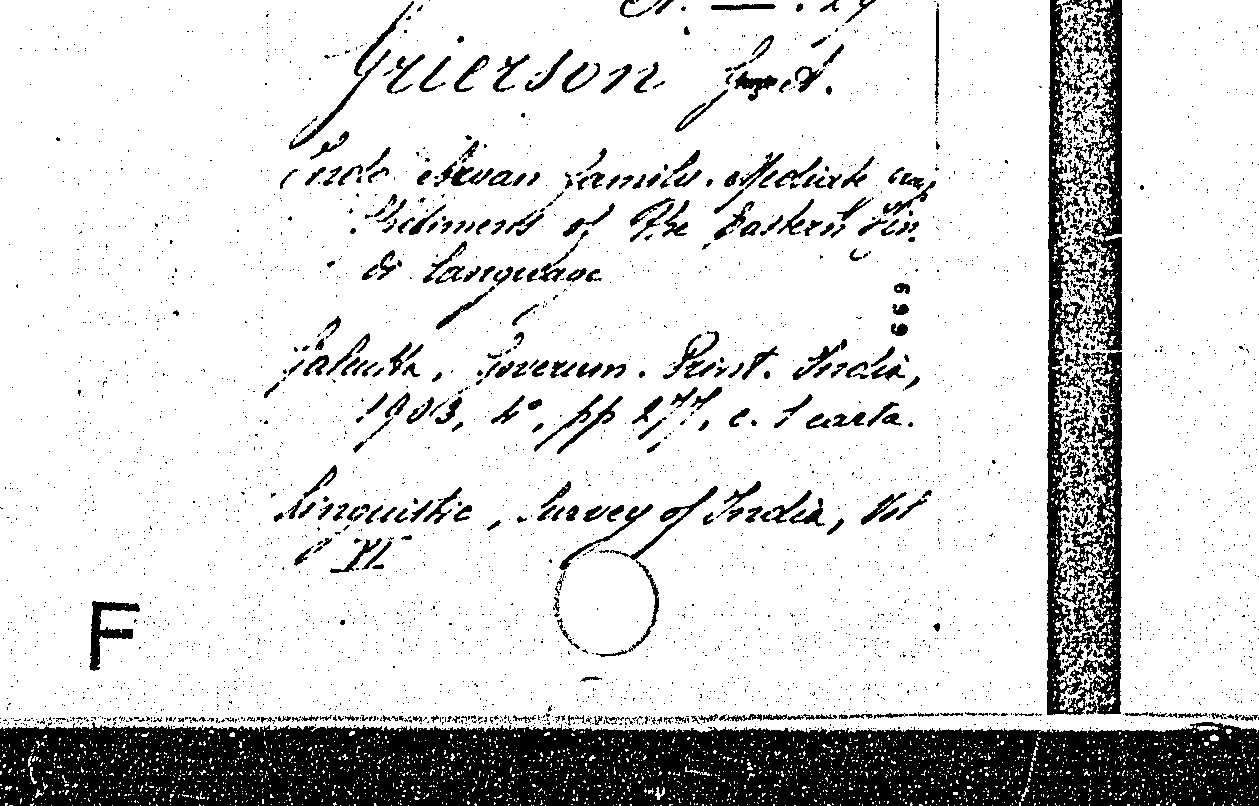 Grierson
Indo Aryan family. Mediate
of the Eastern Hin
di language
669
Calcutta, Governm. Print. India,
1903, 4°, pp 277, c. 1 carta.
Linguistic, Survey of India, Vol
VI
F